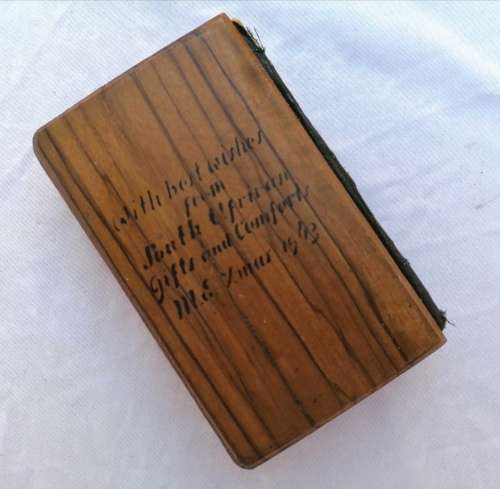 With best wishes
from
South African
Gifts and Comforts
M.E. Xmas 1943